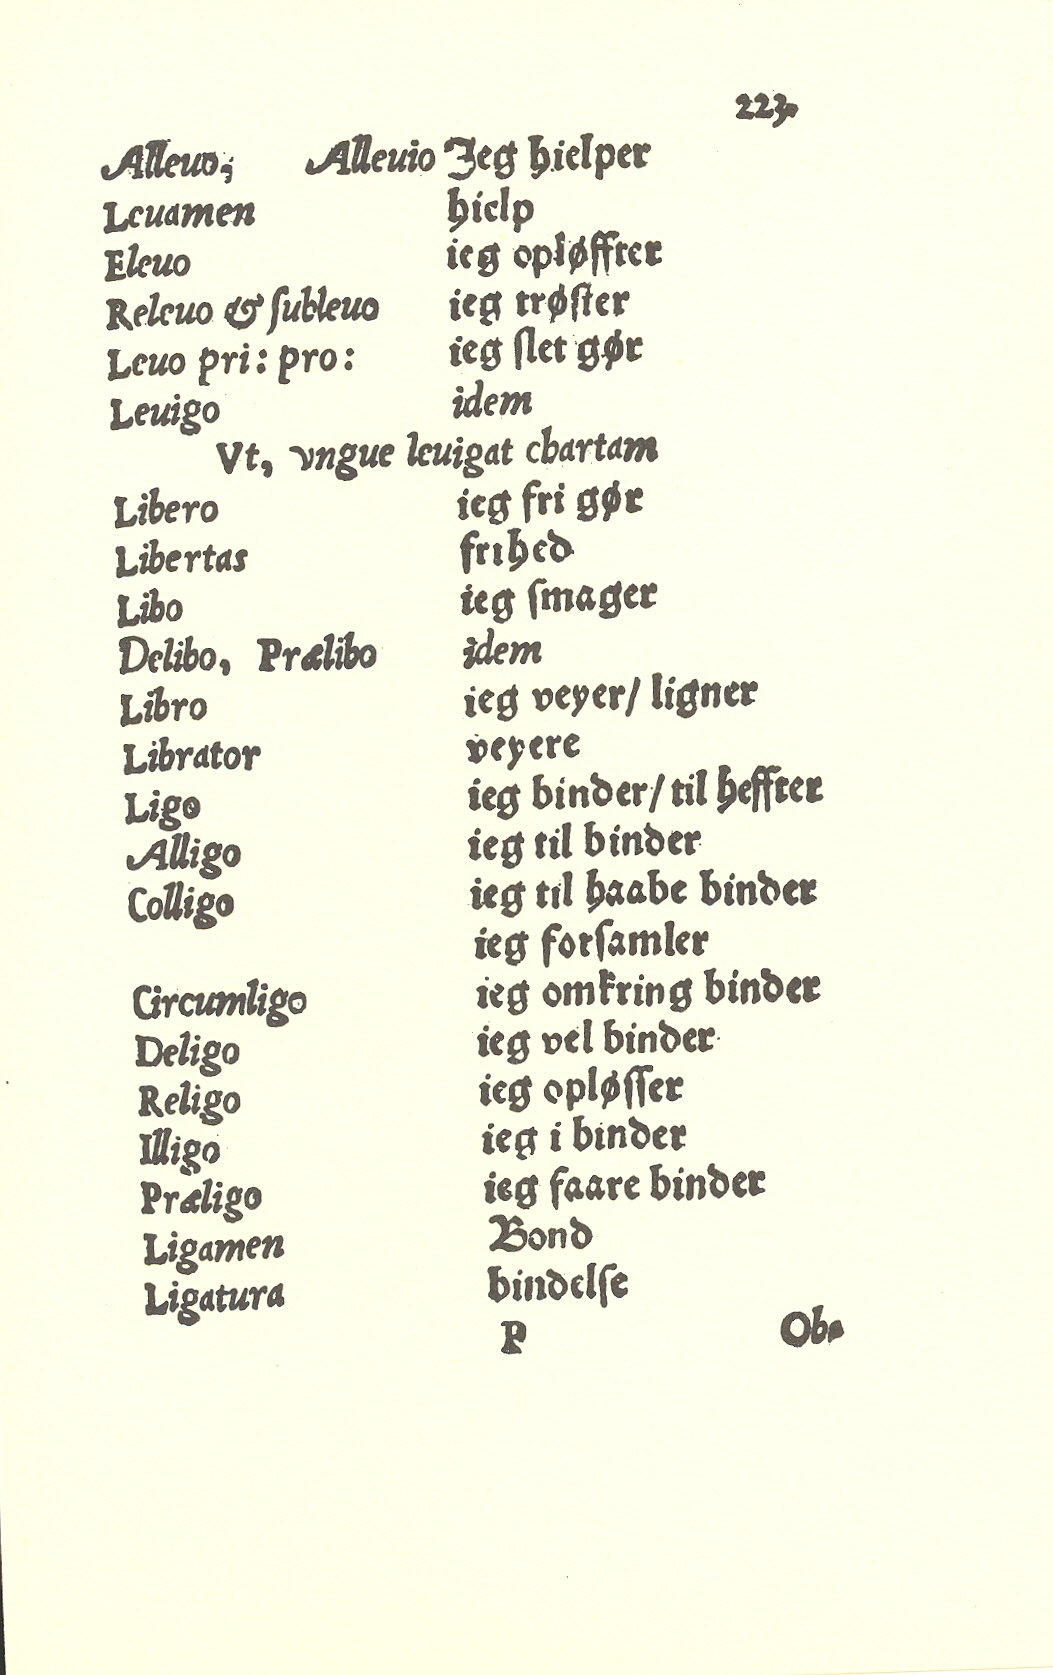 223.
Alleuo, Alleuio Jeg hielper
Leuamen hielp
Eleuo ieg opløffter
Releuo & ſubleuo ieg trøſter
Leuo pri: pro: ieg ſlet gør
Leuigo idem
Vt, vngue leuigat chartam
Libero ieg fri gør
Libertas frihed
Libo ieg ſmager
Delibo, Prælibo idem
Libro ieg veyer/ ligner
Librator veyere
Ligo ieg binder/ til heffter
Alligo ieg til binder
Colligo ieg til haabe binder
ieg forſamler
Circumligo ieg omkring binder
Deligo ieg vel binder
Religo ieg opløſſer
Illigo ieg i binder
Præligo ieg faare binder
Ligamen Bond
Ligatura bindelſe
P Ob-